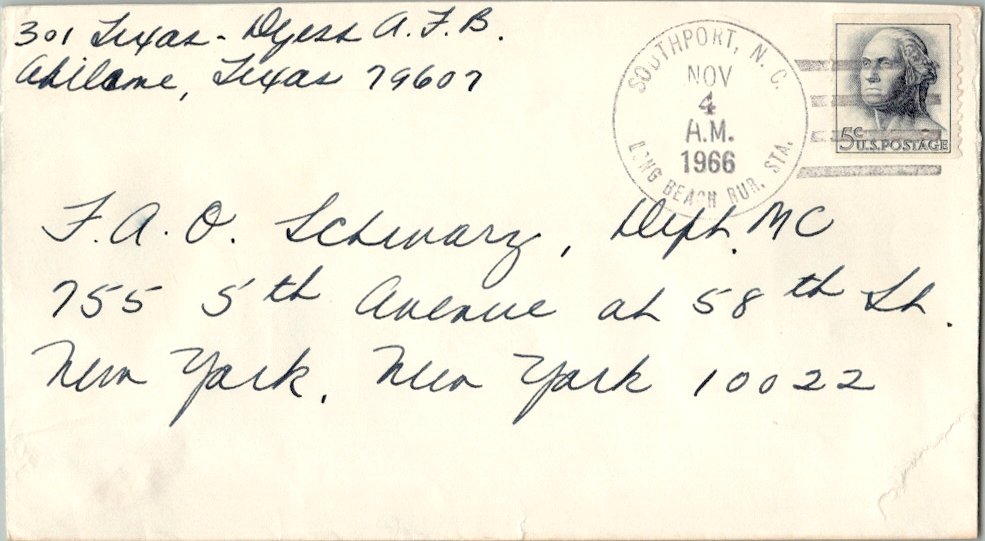 301 Texas - Dyess A.F.B.
Abilene, Texas 79607
SOUTHPORT, N.C.
NOV
4
A.M.
1966
LONG BEACH RUR. STA.
5¢ U.S. POSTAGE
F.A.O. Schwarz, Dept. MC
755 5th Avenue at 58th St.
New York, New York 10022